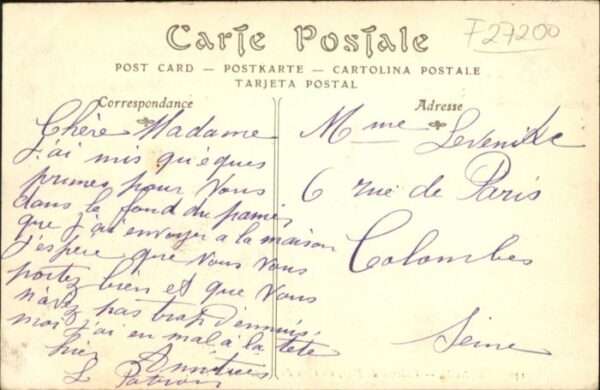 F27200
Carte Postale
POST CARD — POSTKARTE — CARTOLINA POSTALE
TARJETA POSTAL
Correspondance
Chère Madame
J'ai mis quéques
prunes pour Vous
dans le fond du panier
que j'ai envoyer a la maison
J'espere que Vous Vous
portez bien et que Vous
n'avez pas trop d'ennuis,
moi j'ai eu mal à la tete
hier Amitiés
Adresse
Mme
6 rue de Paris
Colombes
Seine